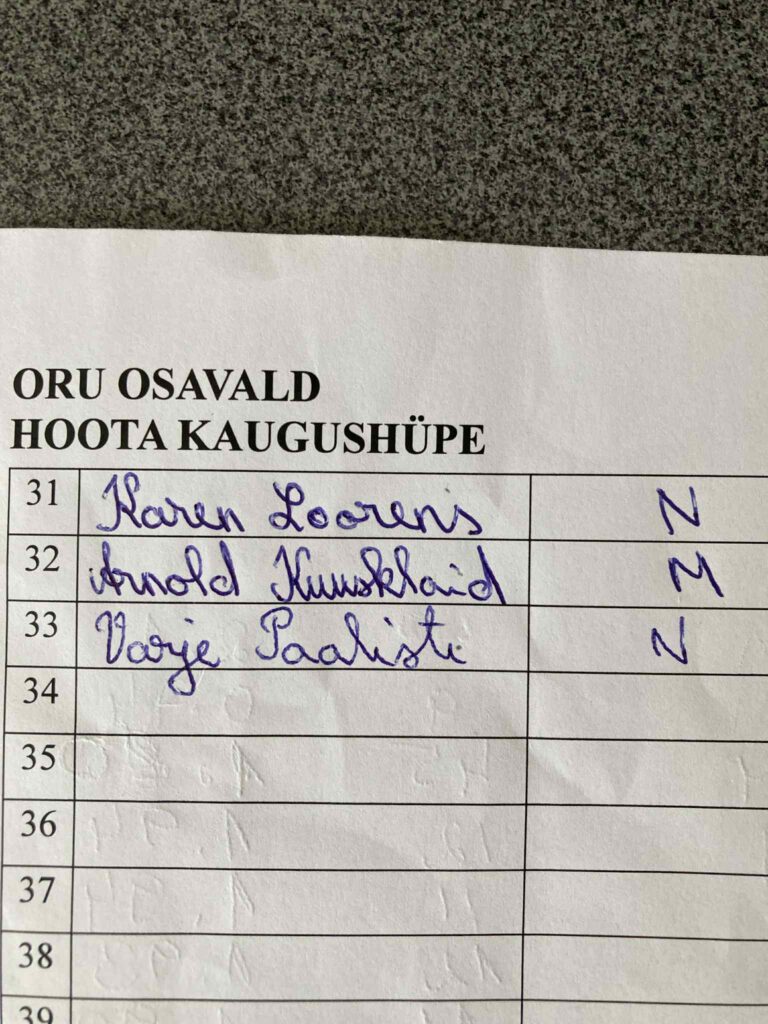 ORU OSAVALD
HOOTA KAUGUSHÜPE
31 Karen Loorens N
32 Arnold Kuusklaid M
33 Varje Paalisti N
34
35
36
37
38
39